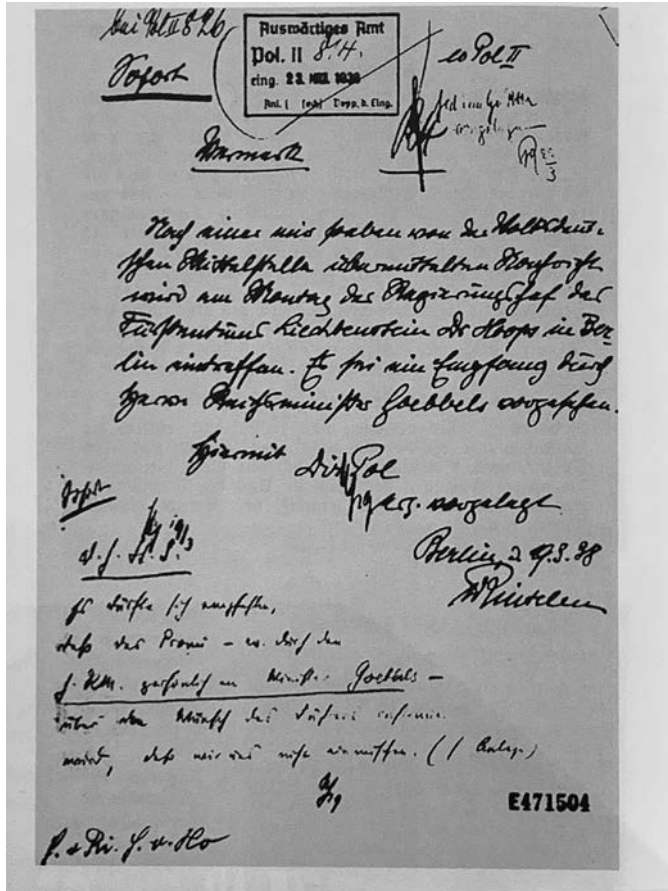 Sofort
Auswärtiges Amt
Pol. II 814.
eing. 23. MRZ. 1938
Anl. ( fach) Dopp. d. Eing.
Pol II
Vermerk
Nach einer mir soeben von der Volksdeut-
schen Mittelstelle übermittelten Nachricht
wird am Montag der Regierungschef des
Fürstentums Liechtenstein Dr Hoops in Ber-
lin eintreffen. Es sei ein Empfang durch
Herrn Reichsminister Goebbels vorgesehen.
Hiermit
Dir. Pol
erg. vorgelegt
Berlin, d 19.3.38
Rintelen
Sofort
Es dürfte sich empfehlen,
daß das Promi – durch den
persönlich an Minister Goebbels –
über den Wunsch des Führers
wird, daß wir uns nicht einmischen. (1 Anlage)
E471504